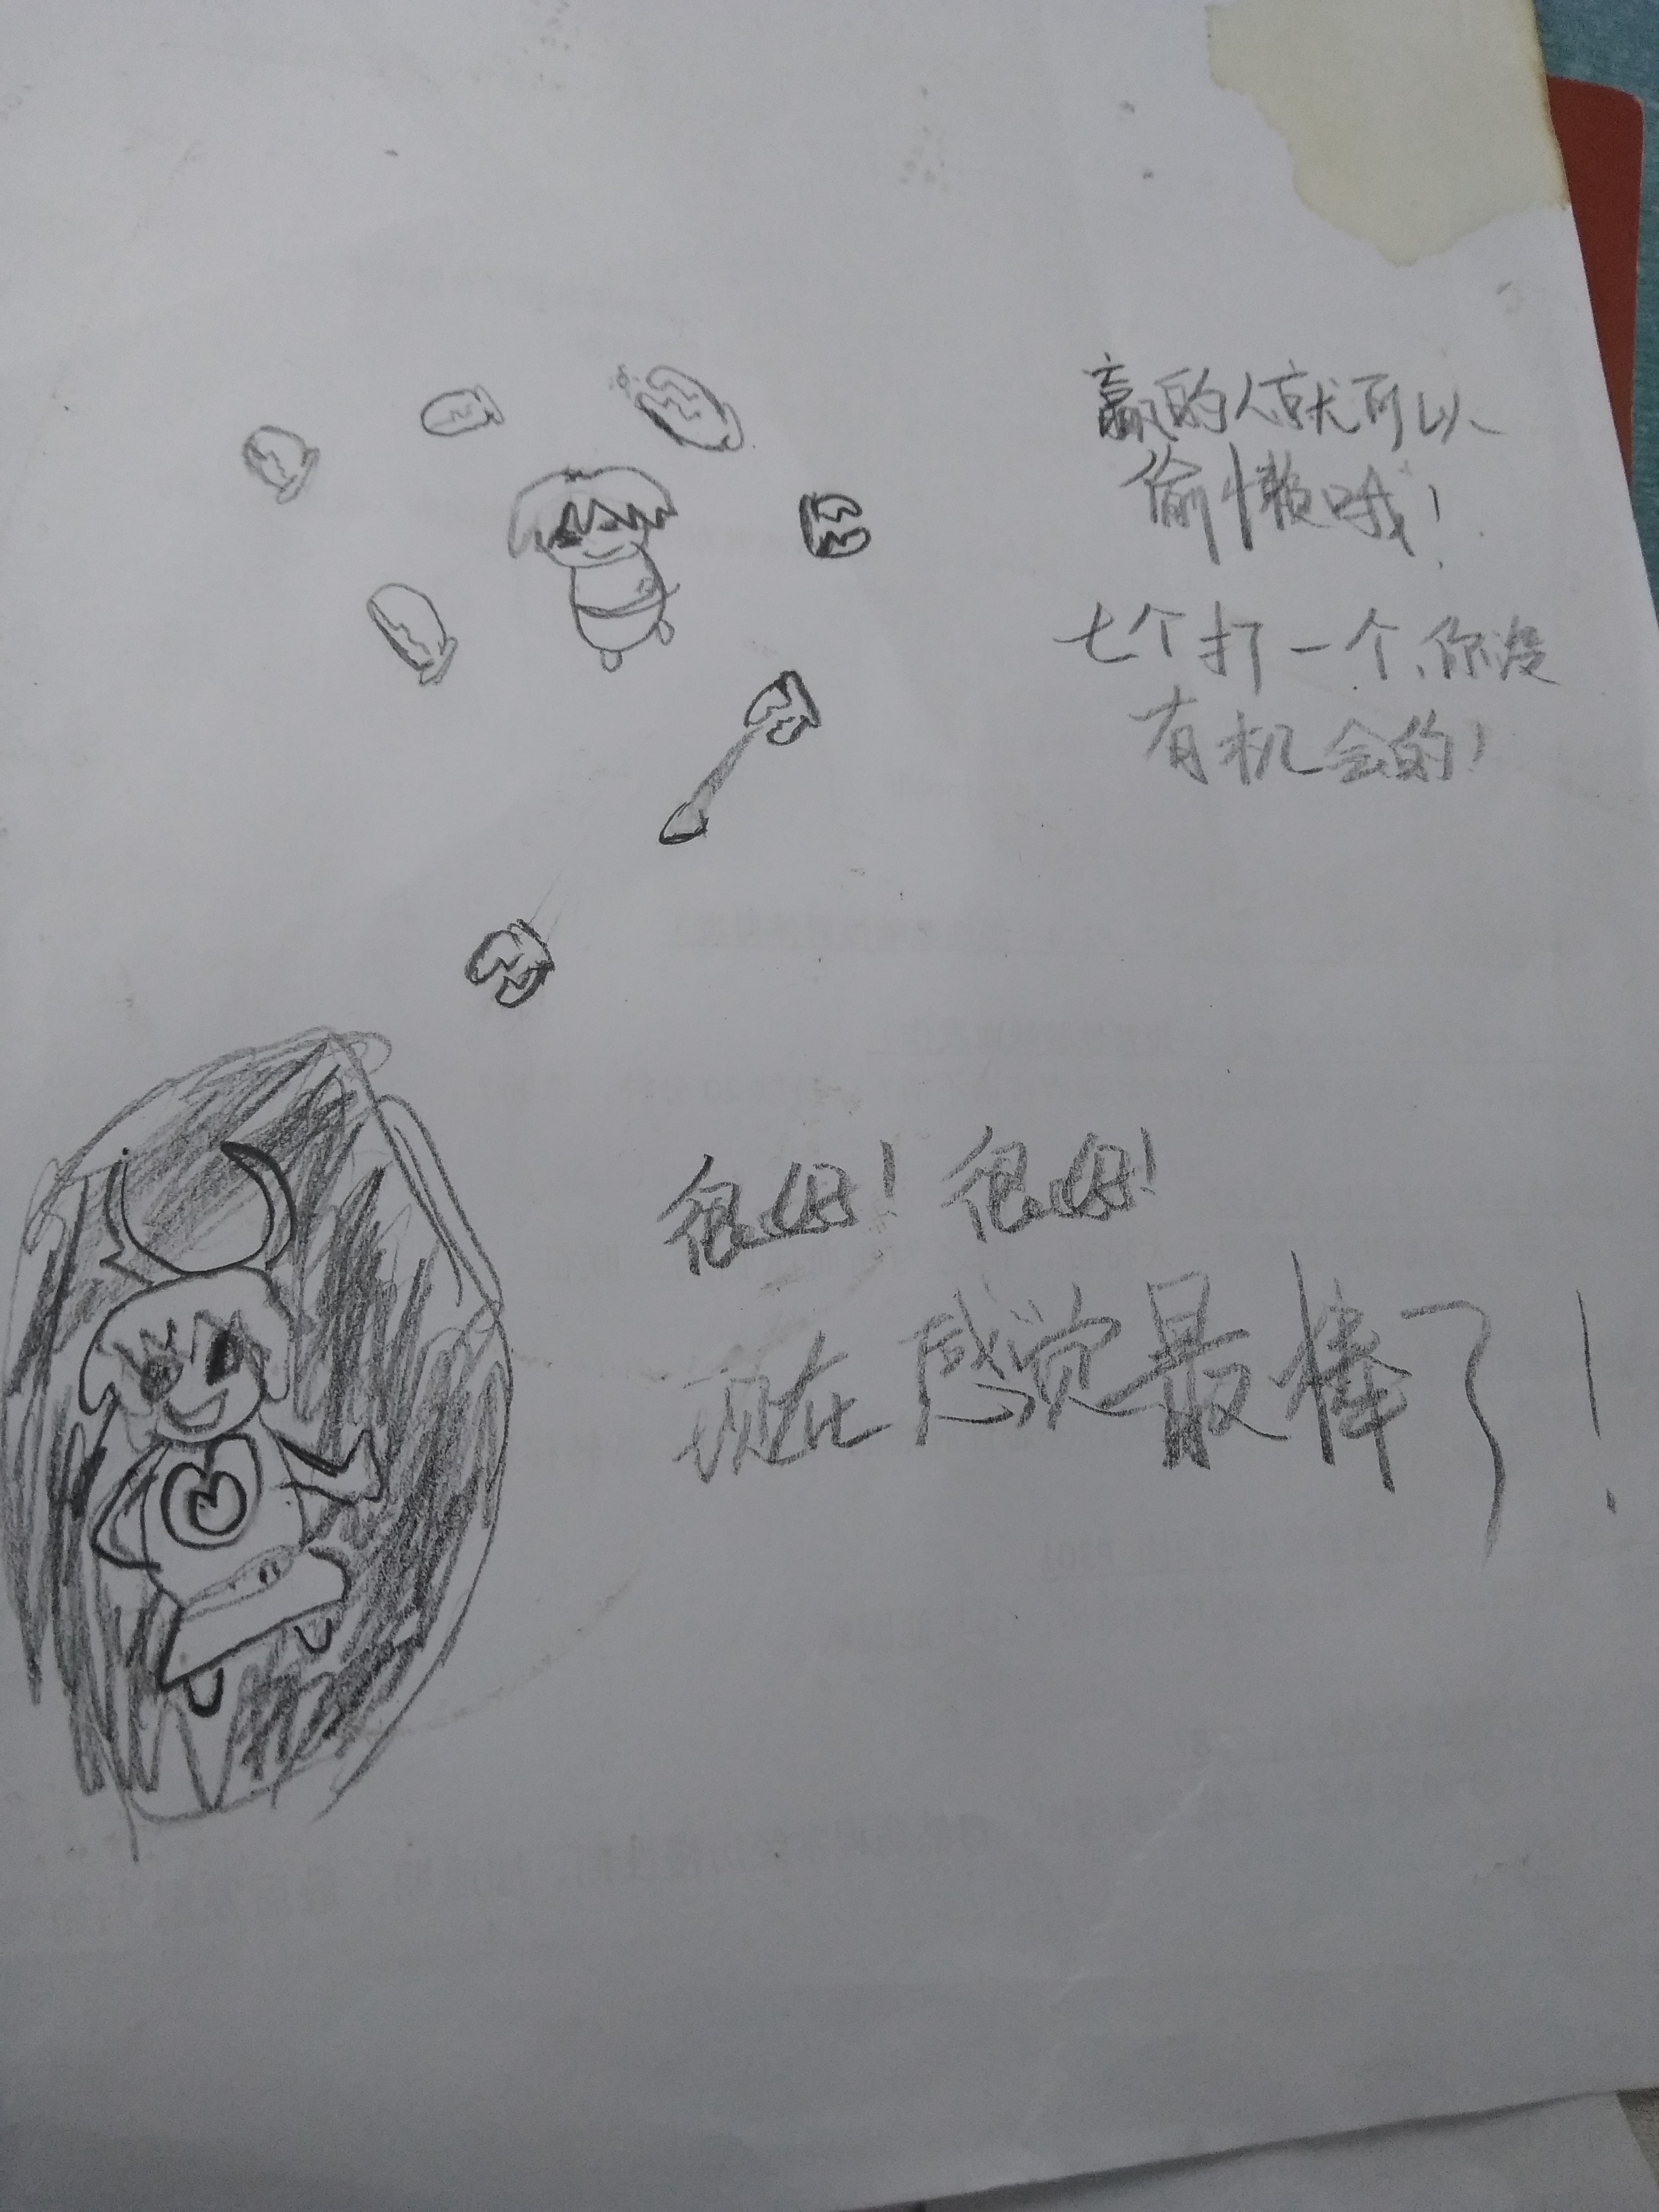 赢的人就可以
偷懒哦！
七个打一个、你没
有机会的！
很好！很好！
现在感觉最棒了！